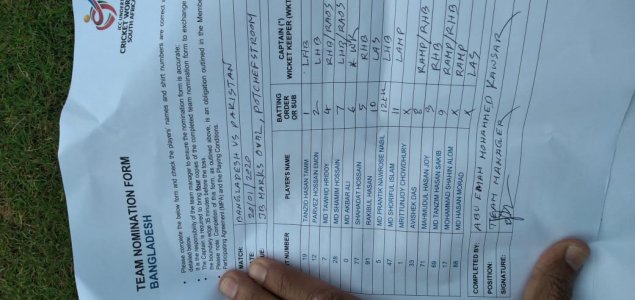 CRICKET WORLD
SOUTH AFRICA
TEAM NOMINATION FORM
BANGLADESH
Please complete the below form and check the players' names and shirt numbers are correct
detailed below.
It is the responsibility of the team manager to ensure the nomination form is accurate;
The Captain is required to bring four copies of the completed team nomination form to exchange
the boundary edge 35 minutes before the toss.
Please note: Completion of this form, as outlined above, is an obligation outlined in the Member
Participating Agreement (MPA) and the Playing Conditions.
MATCH: BANGLADESH VS PAKISTAN
24/01/2020
JB MARKS OVAL, POTCHEFSTROOM
NUMBER PLAYER'S NAME BATTING ORDER OR SUB CAPTAIN (*) WICKET KEEPER (WKT)
19 TANZID HASAN TAMIM LHB
12 PARVEZ HOSSAIN EMON 2 LHB
7 MD TAWHID HRIDOY 4 RHB/RAOS
28 MD SHAMIM HOSSAIN 7 LHB/RAOS
0 MD AKBAR ALI 6 * WK
77 SHAHADAT HOSSAIN 5 RHB
91 RAKIBUL HASAN 10 LAS
5 MD PRANTIK NAWROSE NABIL 12th LHB
47 MD SHORIFUL ISLAM 11 LAMP
1 MRITTUNJOY CHOWDHURY X
33 AVISHEK DAS 8 RAMP/RHB
71 MAHMUDUL HASAN JOY 3 RHB
69 MD TANZIM HASAN SAKIB 9 RAMP/RHB
17 MOHAMMAD SHAHIN ALOM X RAMP
88 MD HASAN MORAD X LAS
COMPLETED BY: ABU EMAM MOHAMMED KAWSAR
POSITION: TEAM MANAGER
SIGNATURE: